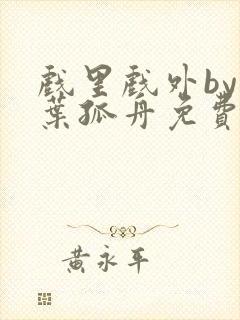 戲里戲外by
葉孤舟免費
黃永平